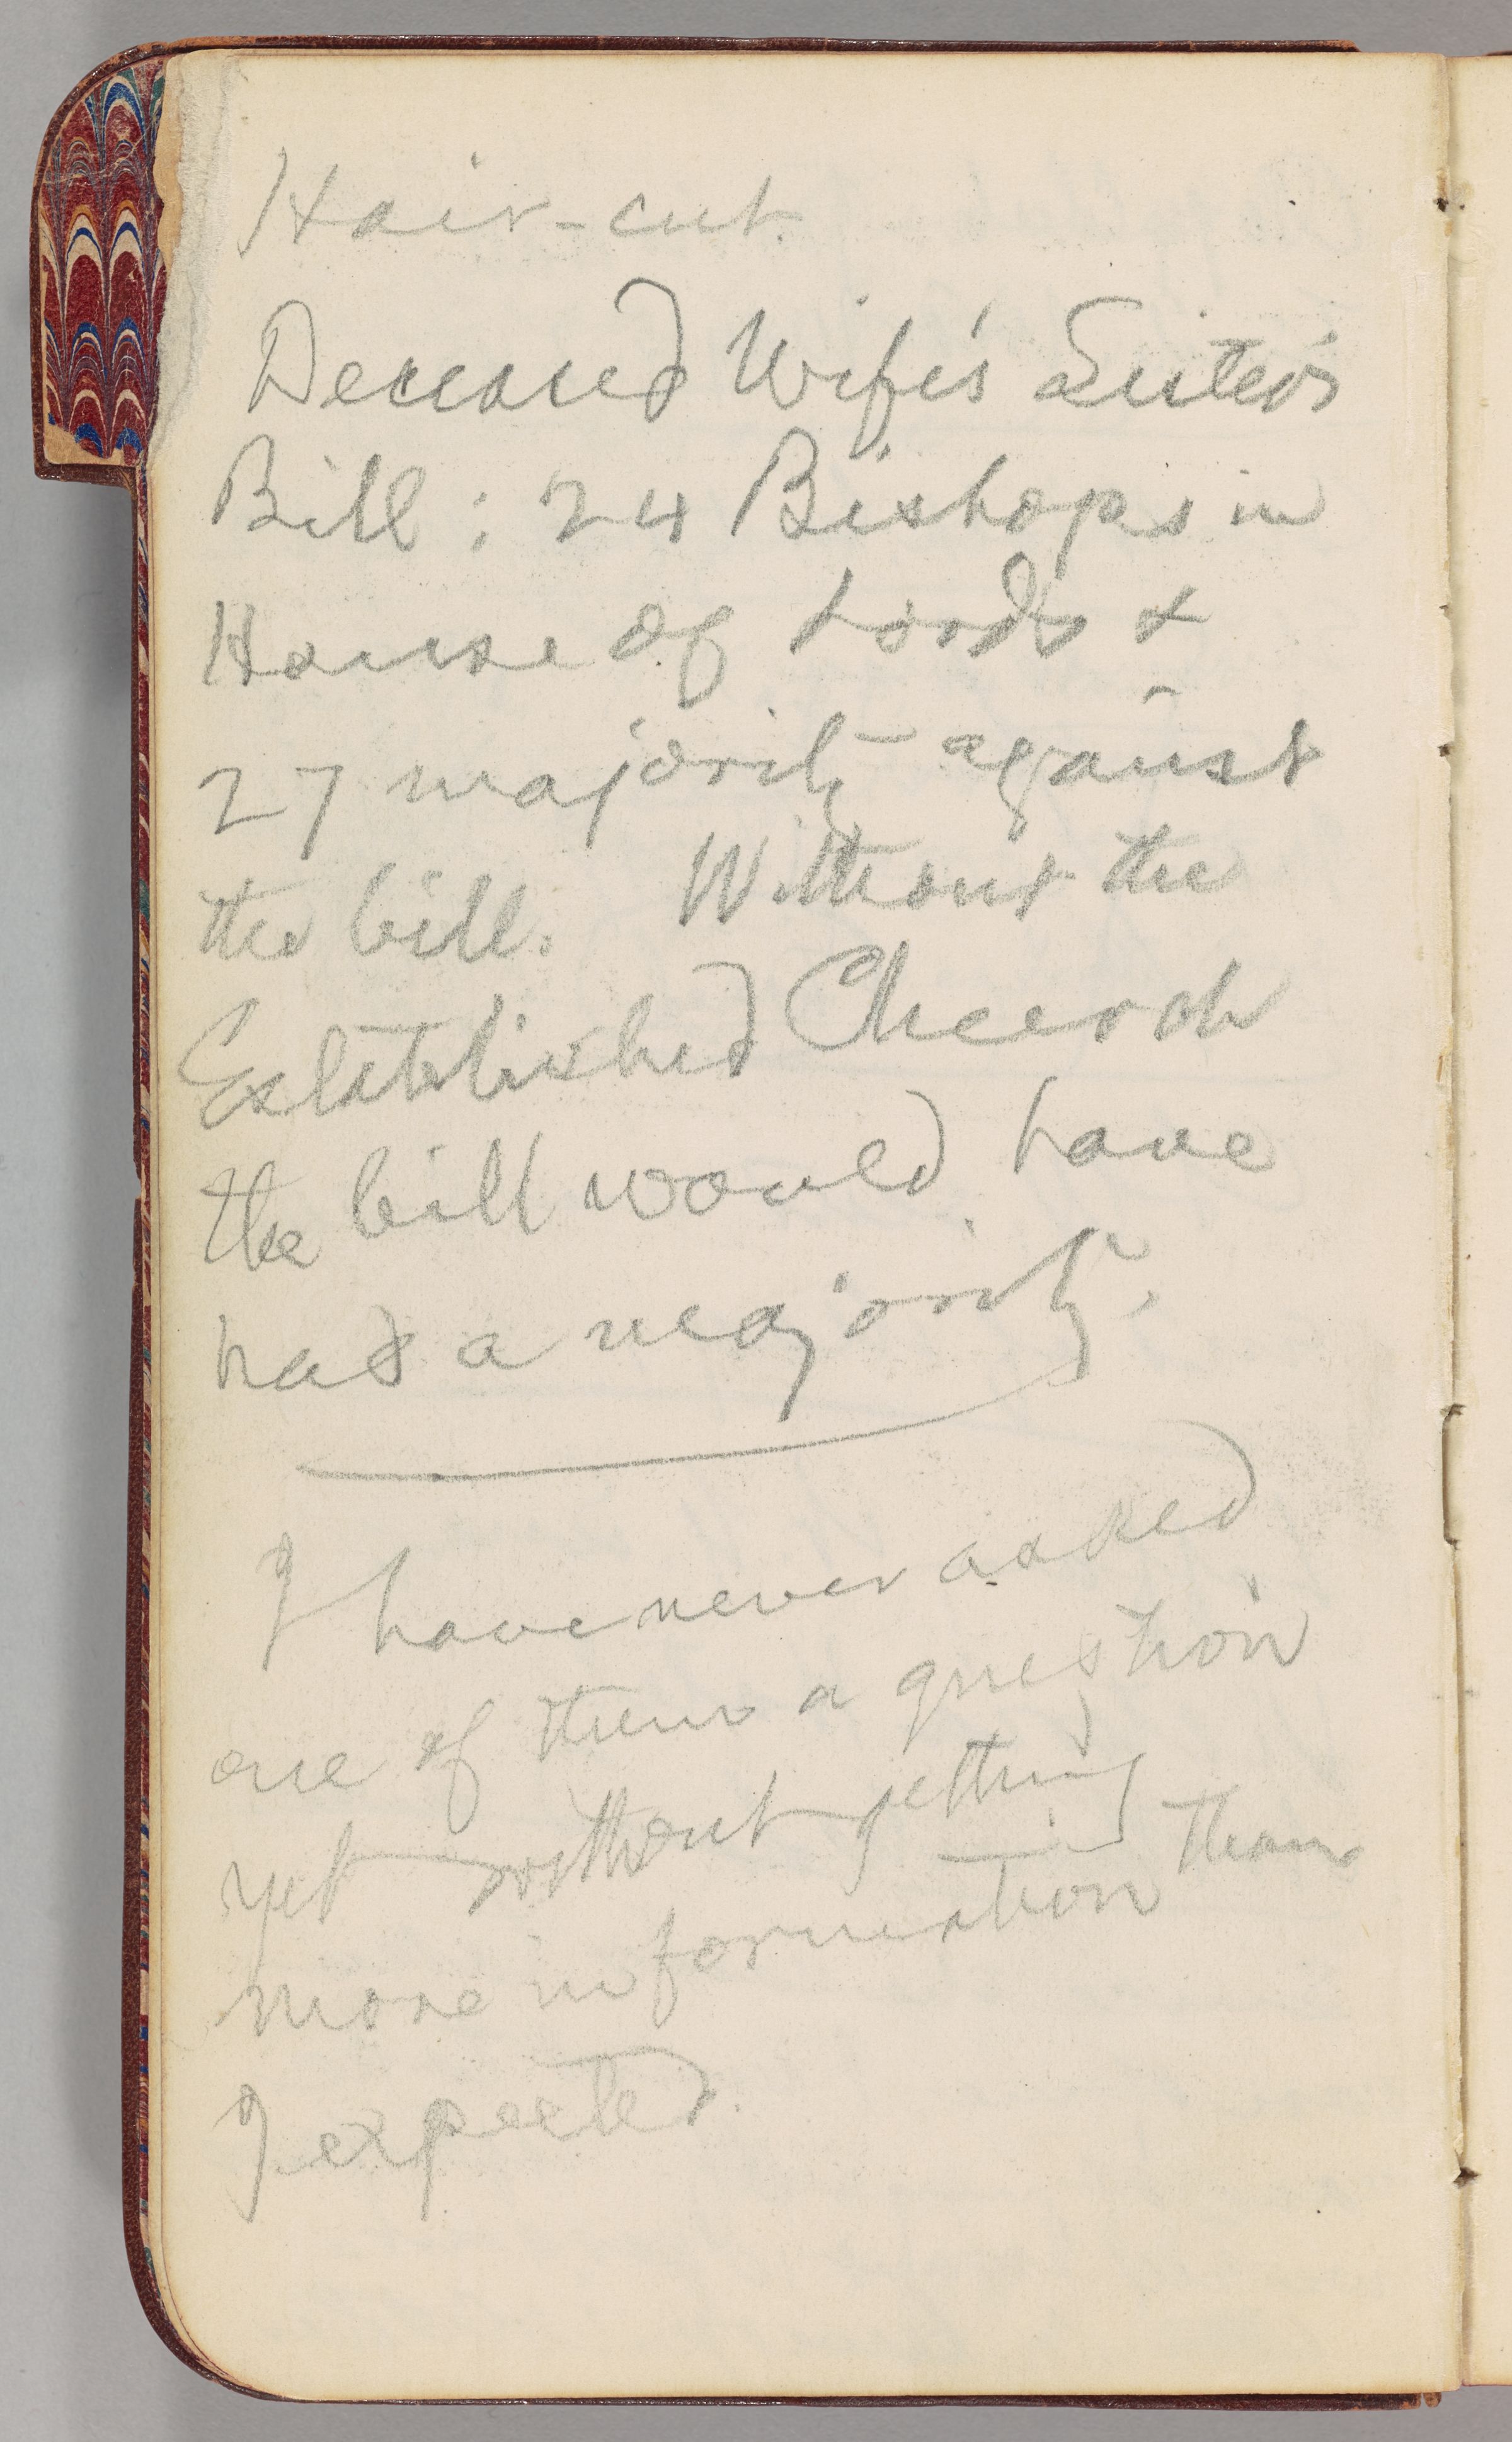 Hair-cut.
Deceased Wife's Sister's
Bill: 24 Bishops in
House of Lords &
27 majority against
the bill. Without the
Established Church
the bill would have
had a majority.
I have never asked
one of them a question
yet without getting
more information than
I expected.